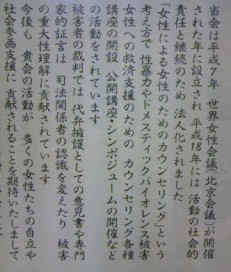 当会は平成7年 世界女性会議(北京会議)が開催
された年に設立され 平成18年には 活動の社会的
責任と継続のため 法人化されました
「女性による女性のためのカウンセリング」という
考え方で 性暴力やドメスティックバイオレンス被害
女性への救済支援のための カウンセリング各種
講座の開設 公開講座・シンポジュームの開催など
の活動をされています
被害者の裁判では 代弁擁護としての意見書や専門
家的証言は 司法関係者の認識を変えたり 被害
の重大性理解に貢献されています
今後も 貴会の活動が 多くの女性たちの自立や
社会参画支援に 貢献されることを期待いたしまして